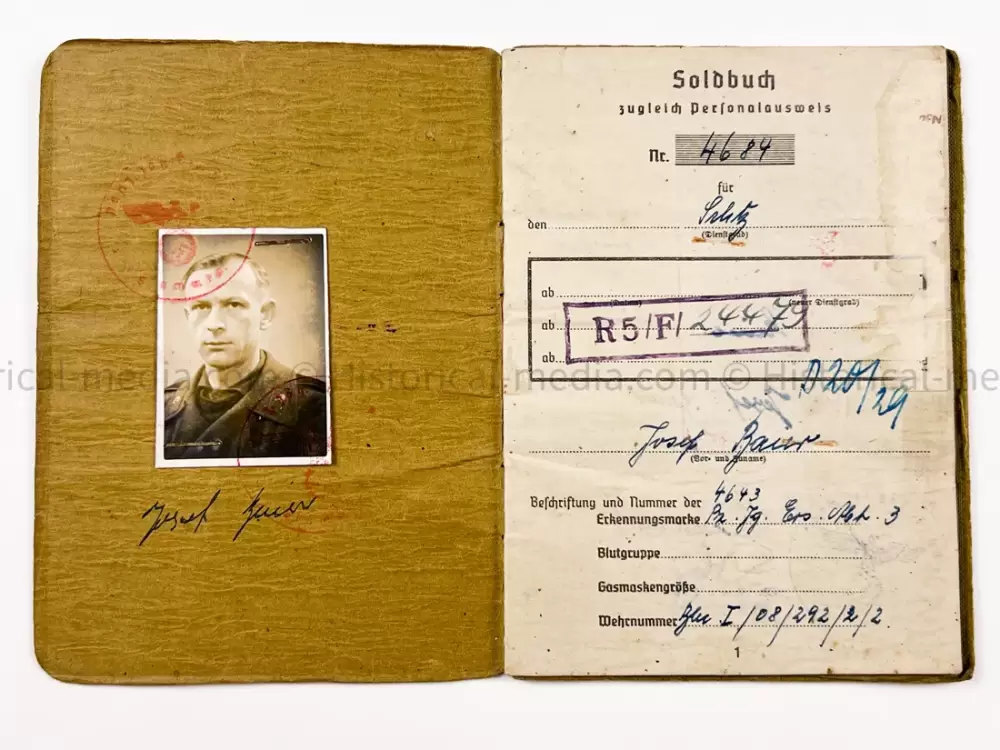 Josef Bauer
Soldbuch
zugleich Personalausweis
Nr. 4684
für
den Schtz
(Dienstgrad)
ab
(Datum) (neuer Dienstgrad)
ab
R5/F/ 24479
ab
D 20/29
Josef Bauer
(Vor- und Zuname)
4643
Beschriftung und Nummer der
Erkennungsmarke Pz. Jg. Ers. Abt. 3
Blutgruppe
Gasmaskengröße
Wehrnummer I/08/292/2/2
1
historical-media.com © Historical-media.com © Historical-me